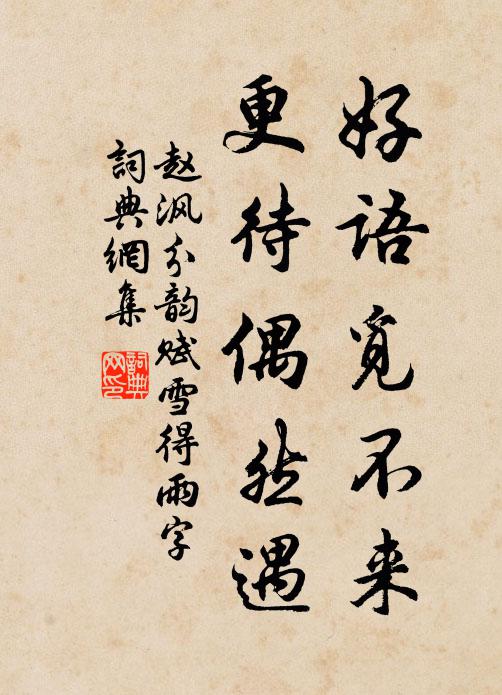 好語覓不来
更待偶然遇
赵沨分韵赋雪得雨字
詞典網集
詞典网印